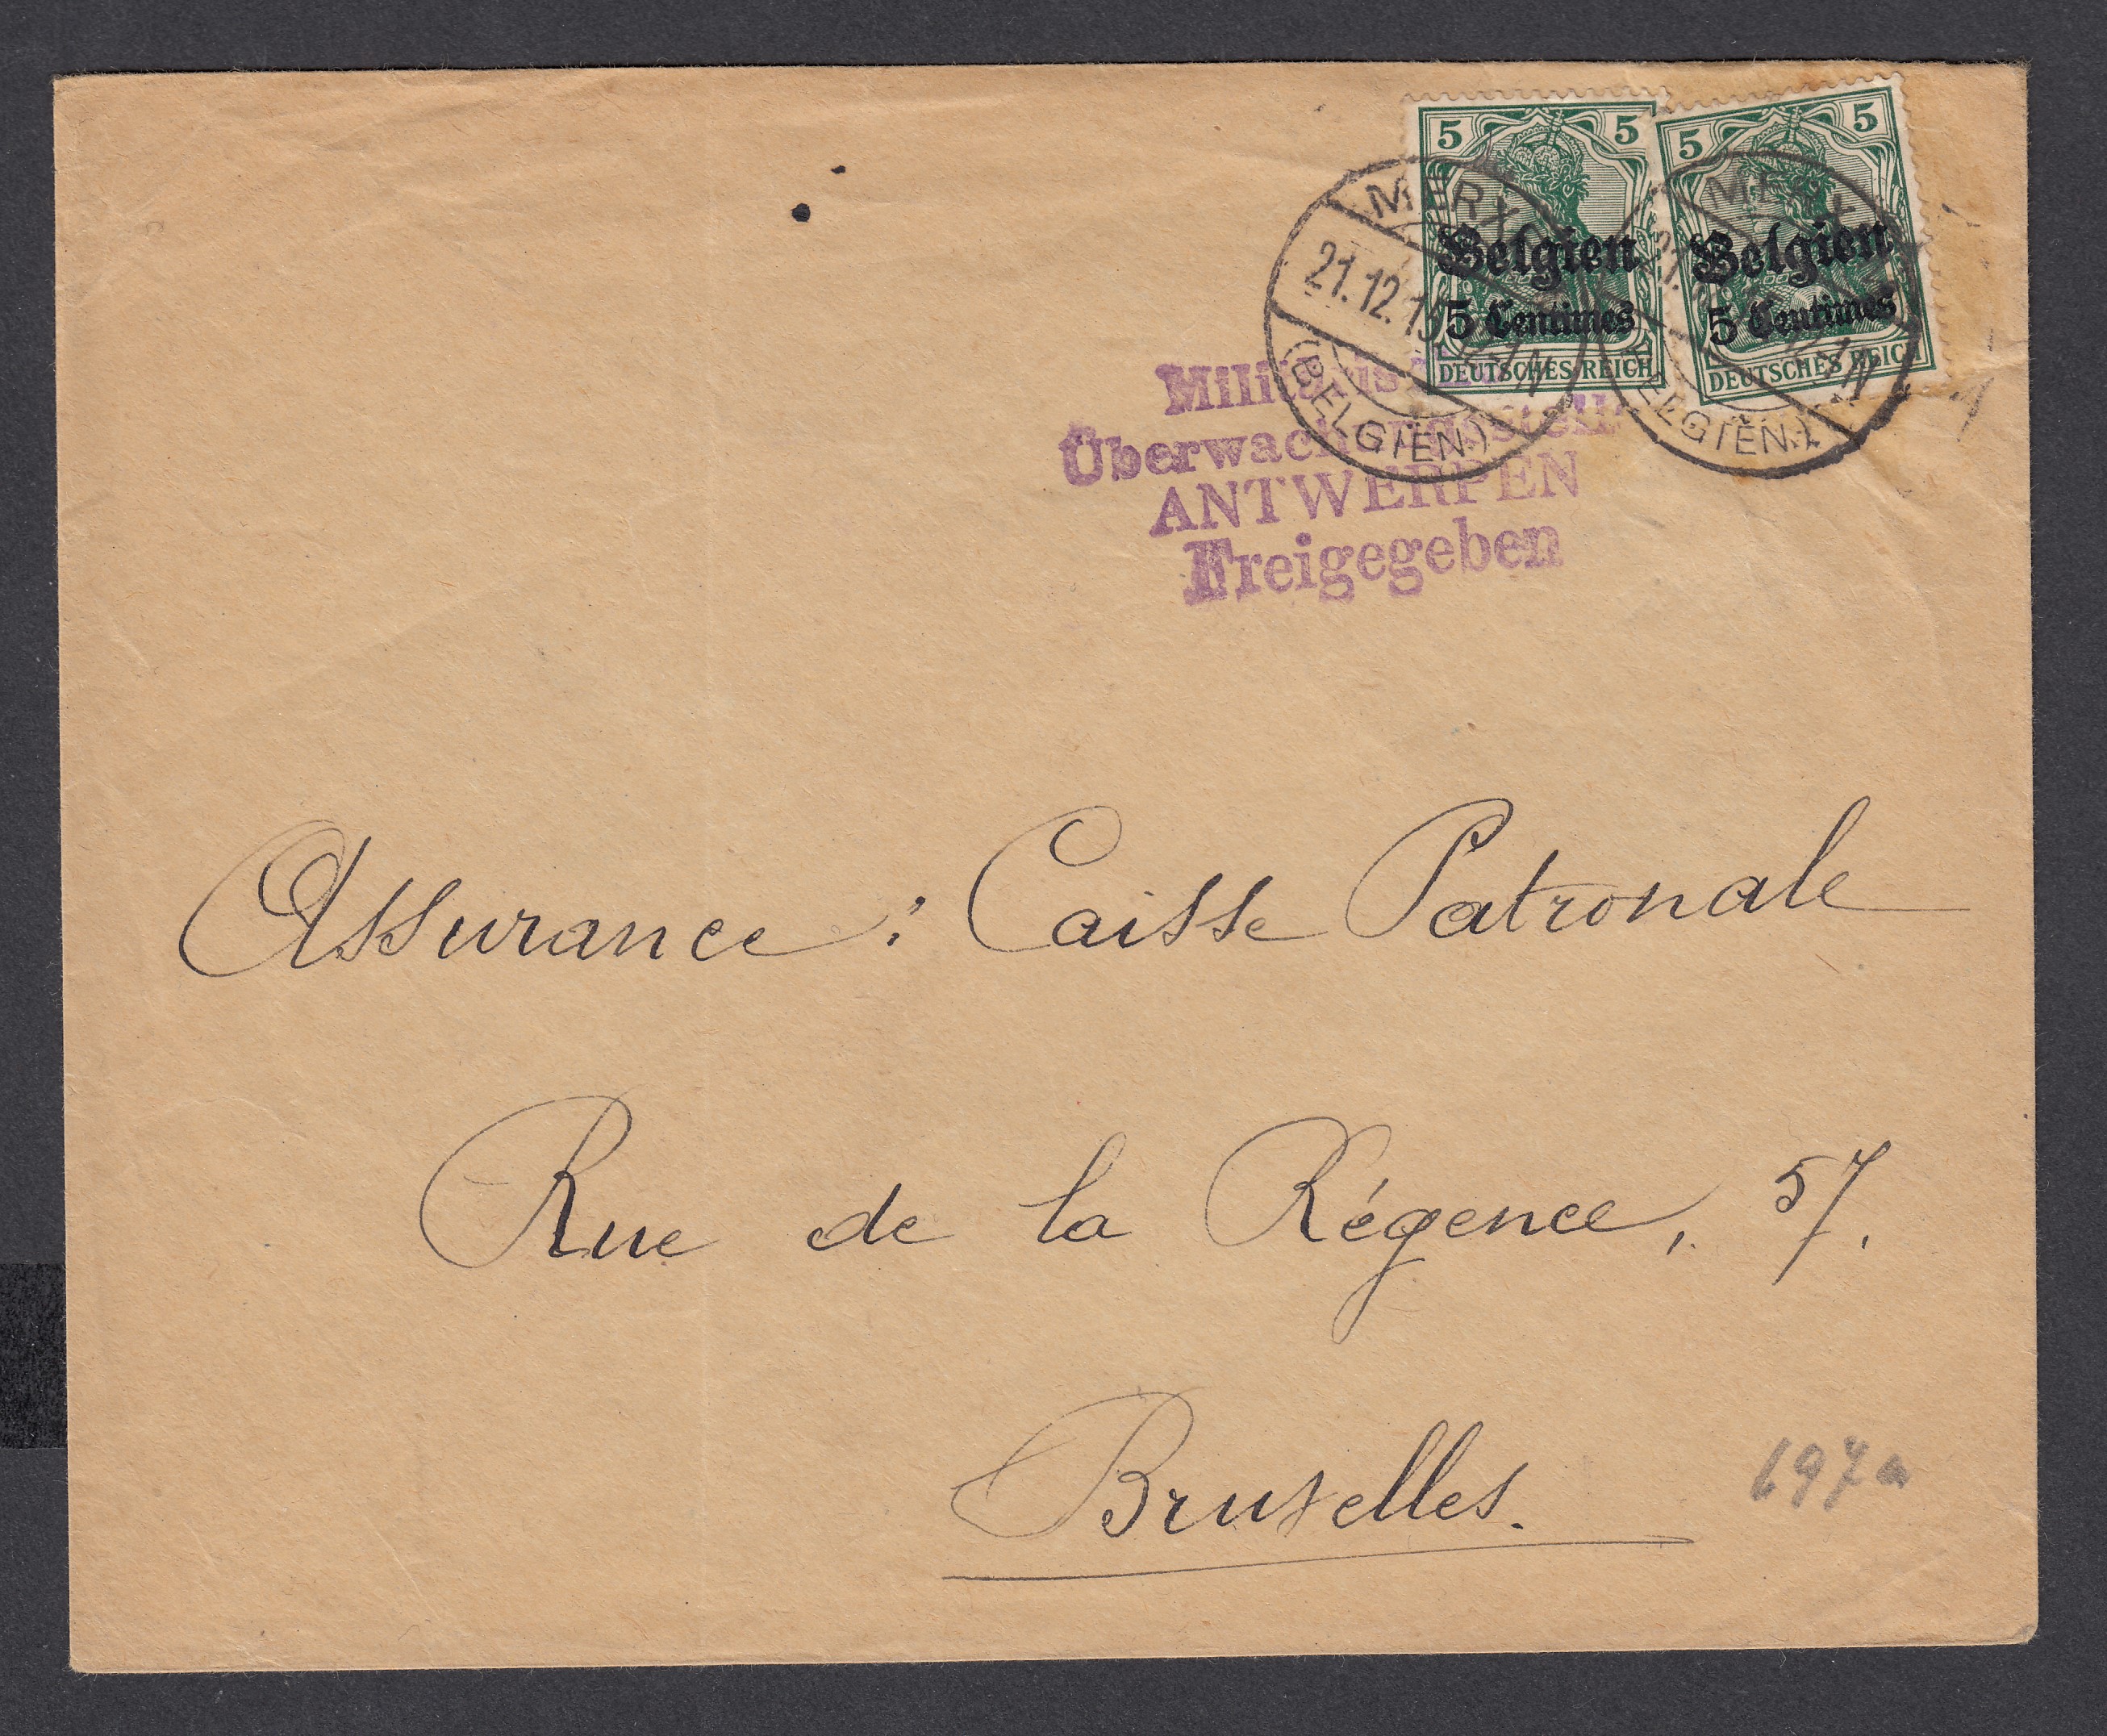 5 5
Belgien
5 Centimes
DEUTSCHES REICH
5 5
Belgien
5 Centimes
DEUTSCHES REICH
MERX
21.12.1
N
(BELGIEN)
MERX
21.
N
BELGIEN)
ANTWERPEN
Freigegeben
Assurance: Caisse Patronale
Rue de la Régence, 57.
Bruxelles.
697a